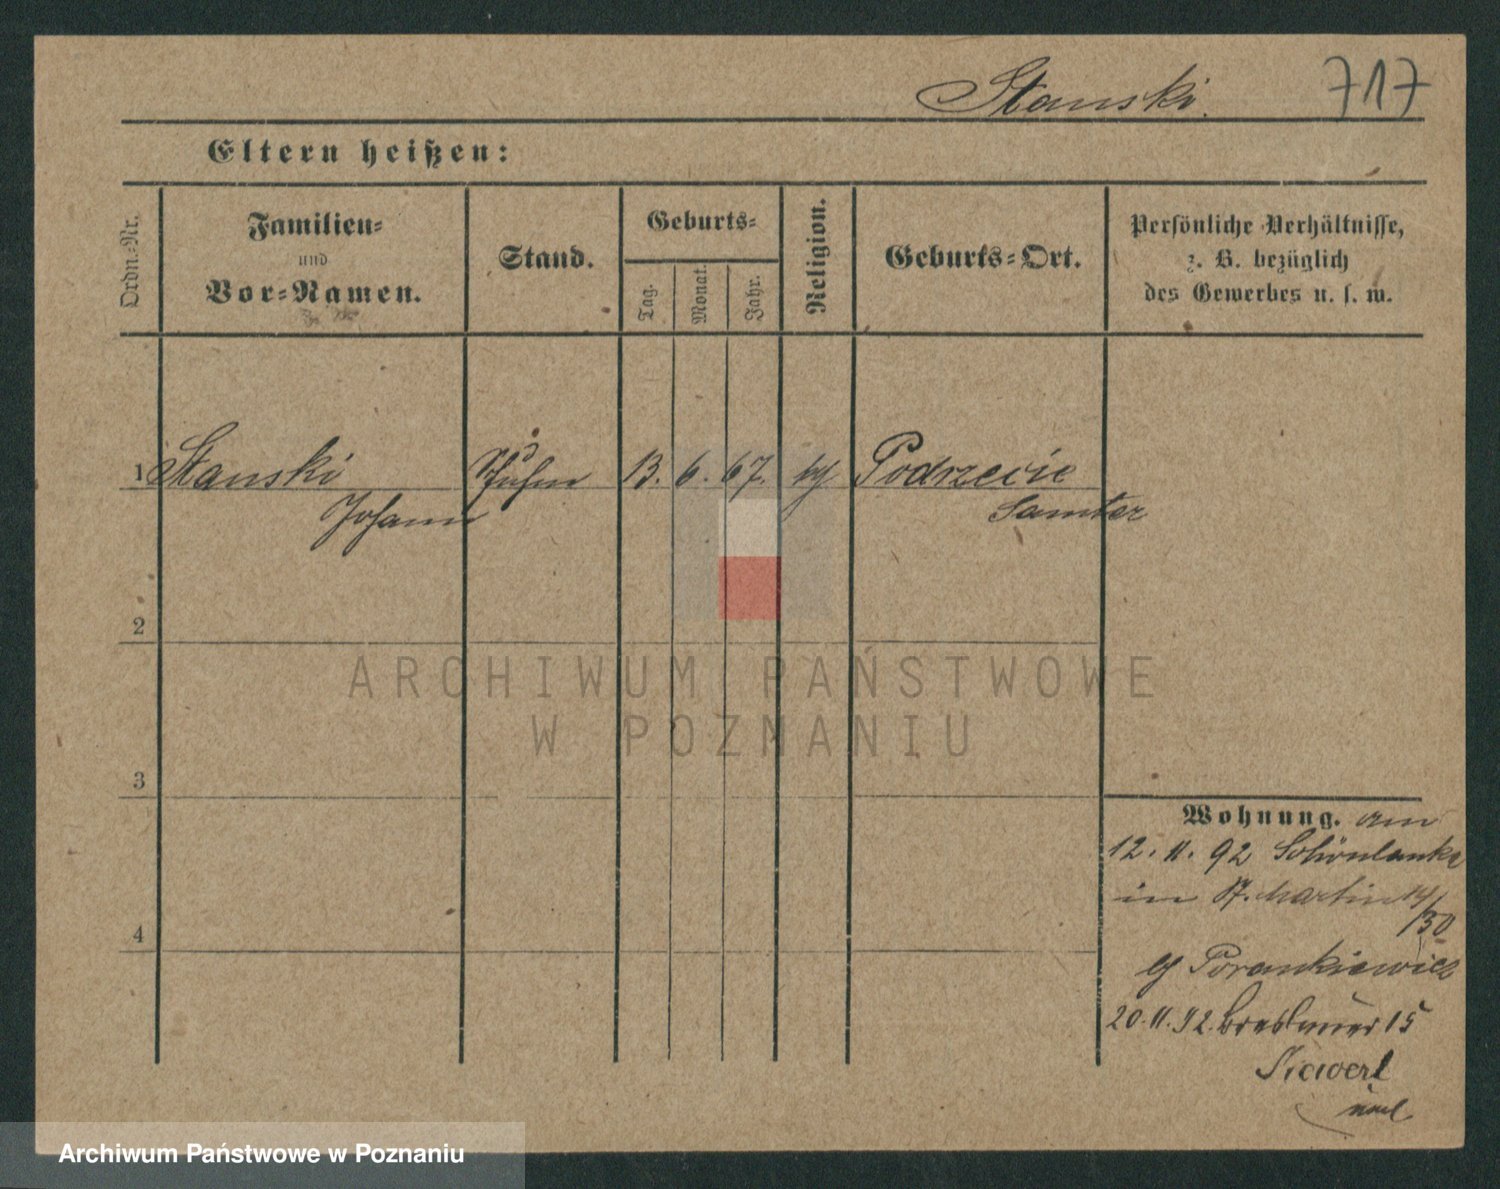 Stanski. 717
Eltern heißen:
Ordn.-Nr.
Familien-
und
Vor-Namen.
Stand.
Geburts-
Tag.
Monat.
Jahr.
Religion.
Geburts-Ort.
Persönliche Verhältnisse,
z. B. bezüglich
des Gewerbes u. s. w.
1 Stanski 13. 6. 67. Podrzewie
Johann Samter
2
ARCHIWUM PAŃSTWOWE
W POZNANIU
3
Wohnung. am
12. 11. 92 Schönlanke
in St. Martin 14/
/30
Porankiewicz
20.11.92. Breslauer 15
Siewert
4
Archiwum Państwowe w Poznaniu